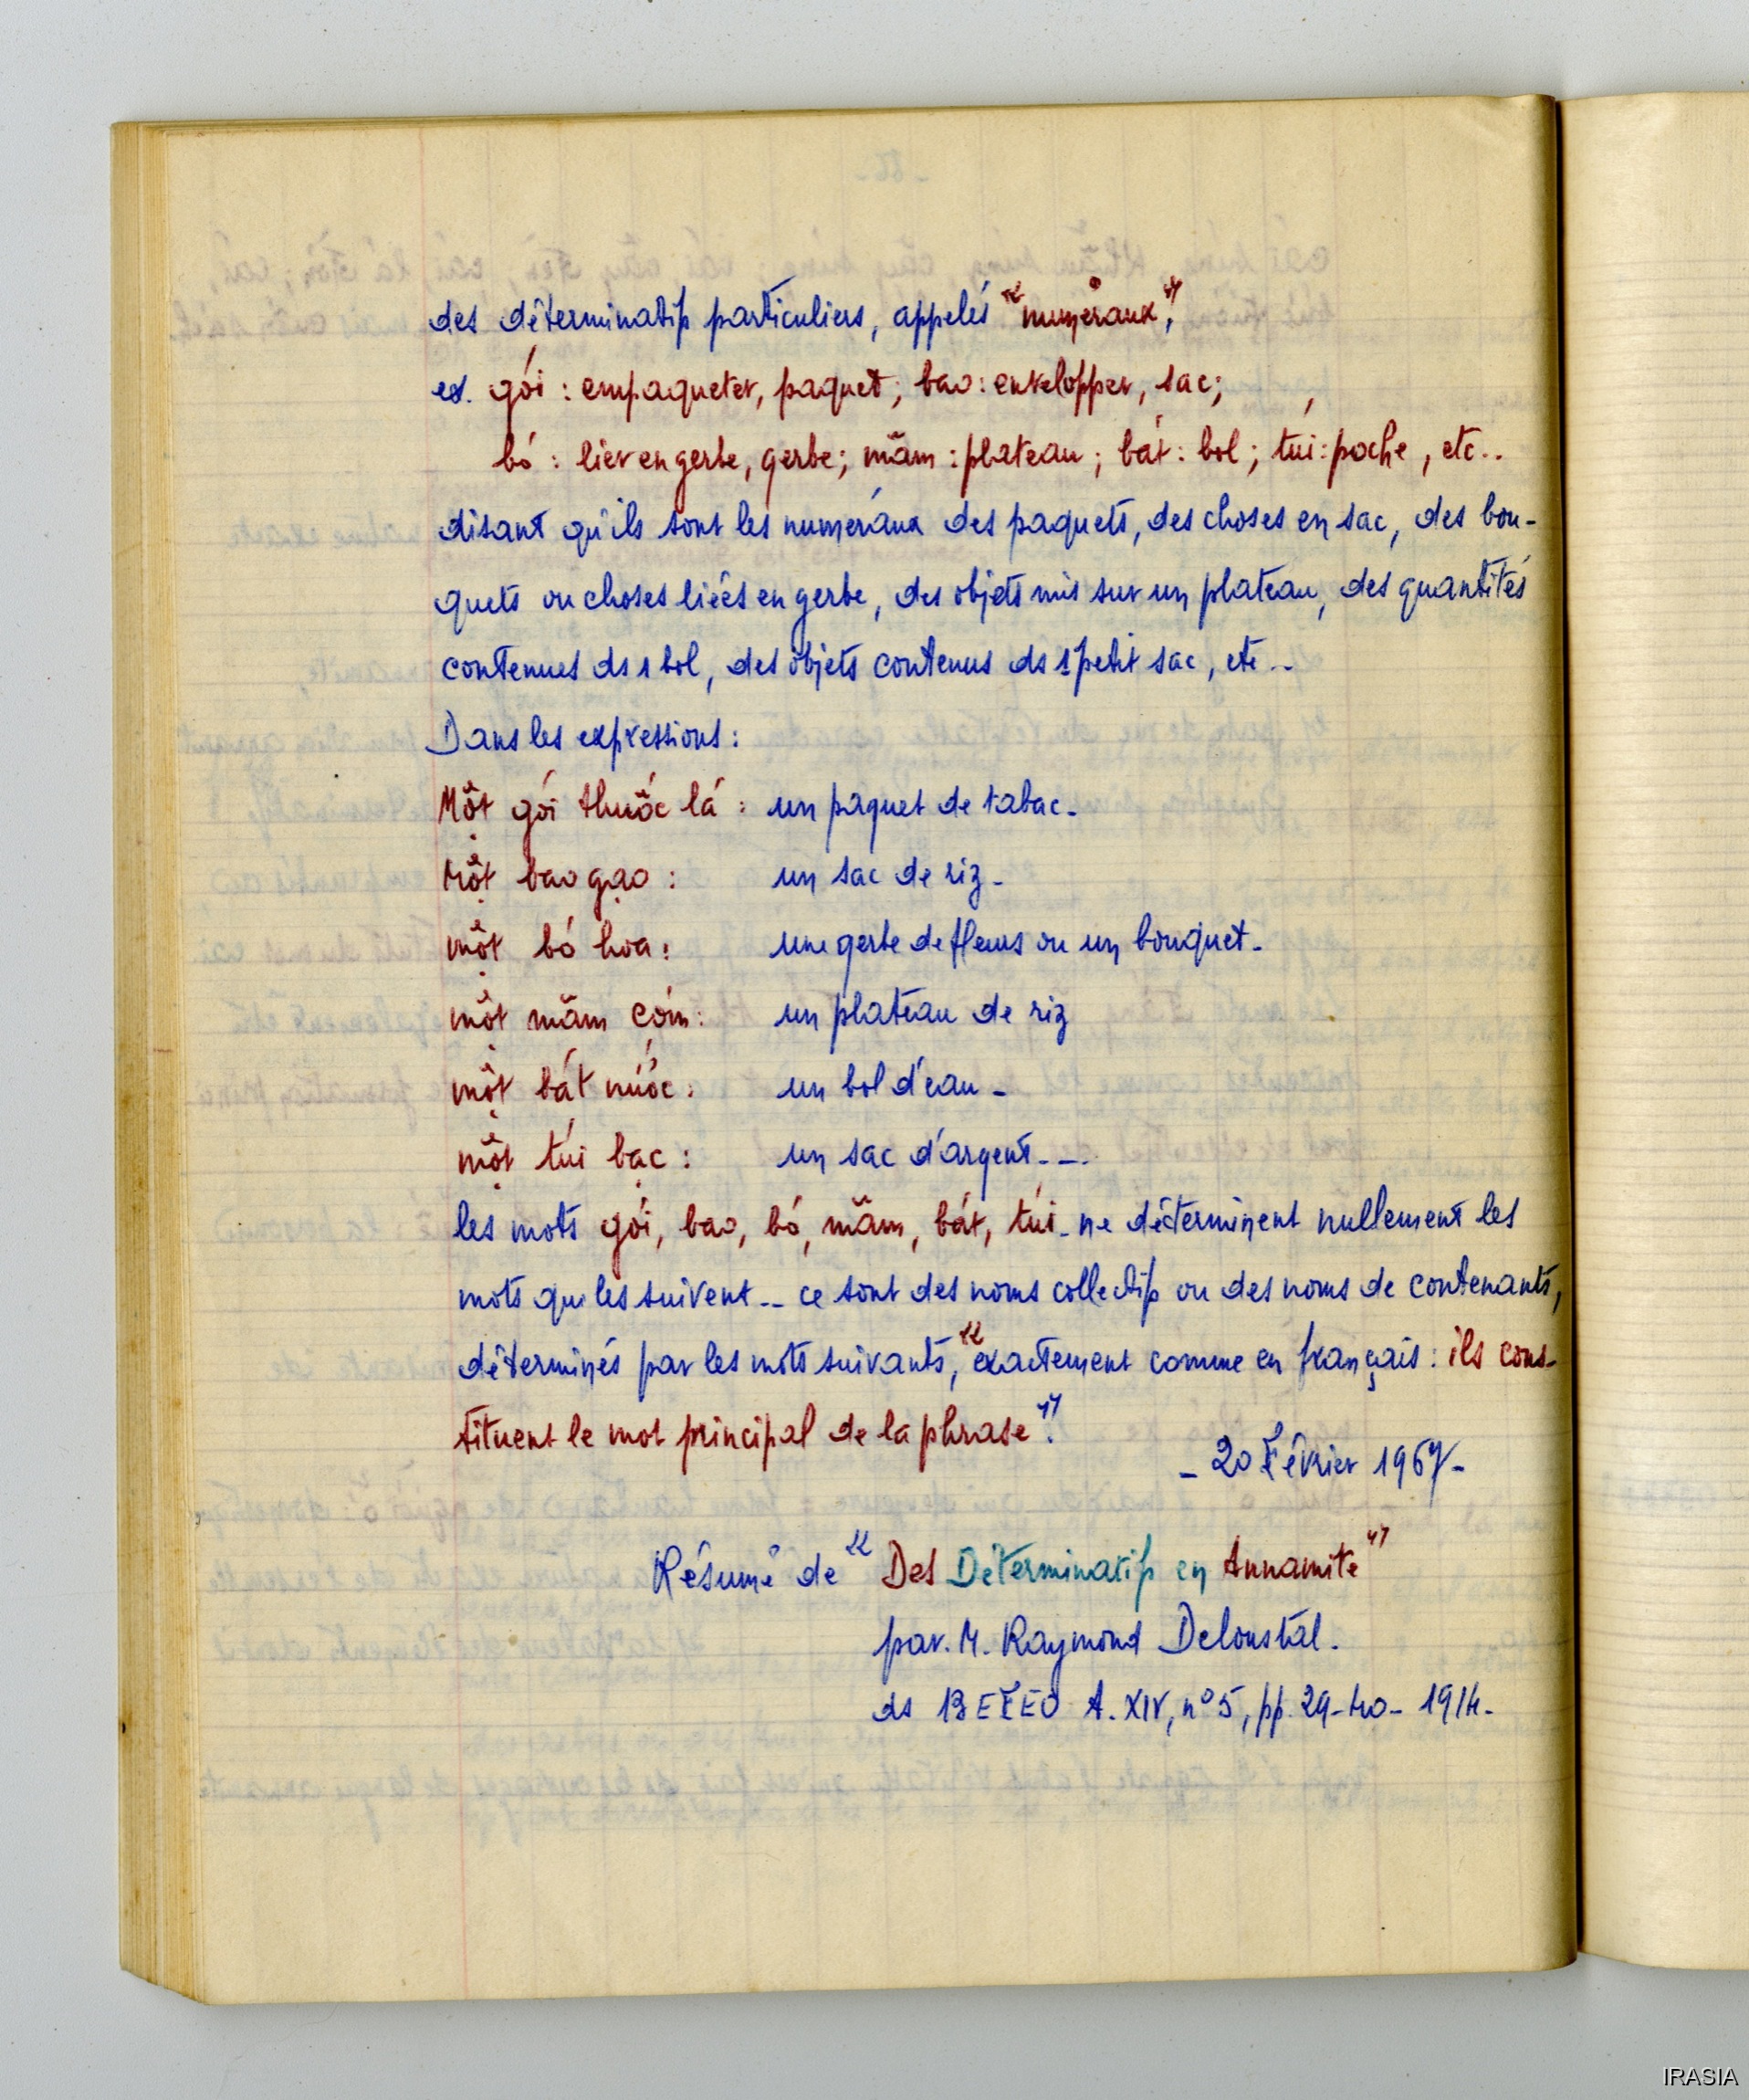 des déterminatifs particuliers, appelés "numéraux",
ex. gói : empaqueter, paquet ; bao : envelopper, sac ;
bó : lier en gerbe, gerbe ; mâm : plateau ; bát : bol ; túi : poche, etc..
disant qu'ils sont les numéraux des paquets, des choses en sac, des bou-
quets ou choses liées en gerbe, des objets mis sur un plateau, des quantités
contenues ds 1 bol, des objets contenus ds 1 petit sac, etc..
Dans les expressions :
Một gói thuốc lá : un paquet de tabac.
Một bao gạo : un sac de riz.
một bó hoa : une gerbe de fleurs ou un bouquet.
một mâm cơm : un plateau de riz
một bát nước : un bol d'eau.
một túi bạc : un sac d'argent...
les mots gói, bao, bó, mâm, bát, túi - ne déterminent nullement les
mots qui les suivent -- ce sont des noms collectifs ou des noms de contenants,
déterminés par les mots suivants, "exactement comme en français : ils cons-
tituent le mot principal de la phrase".
- 20 Février 1967 -
Résumé de "Des Déterminatifs en Annamite"
par. M. Raymond Deloustal.
ds BEFEO t. XIV, n° 5, pp. 29-40 - 1914.
IRASIA